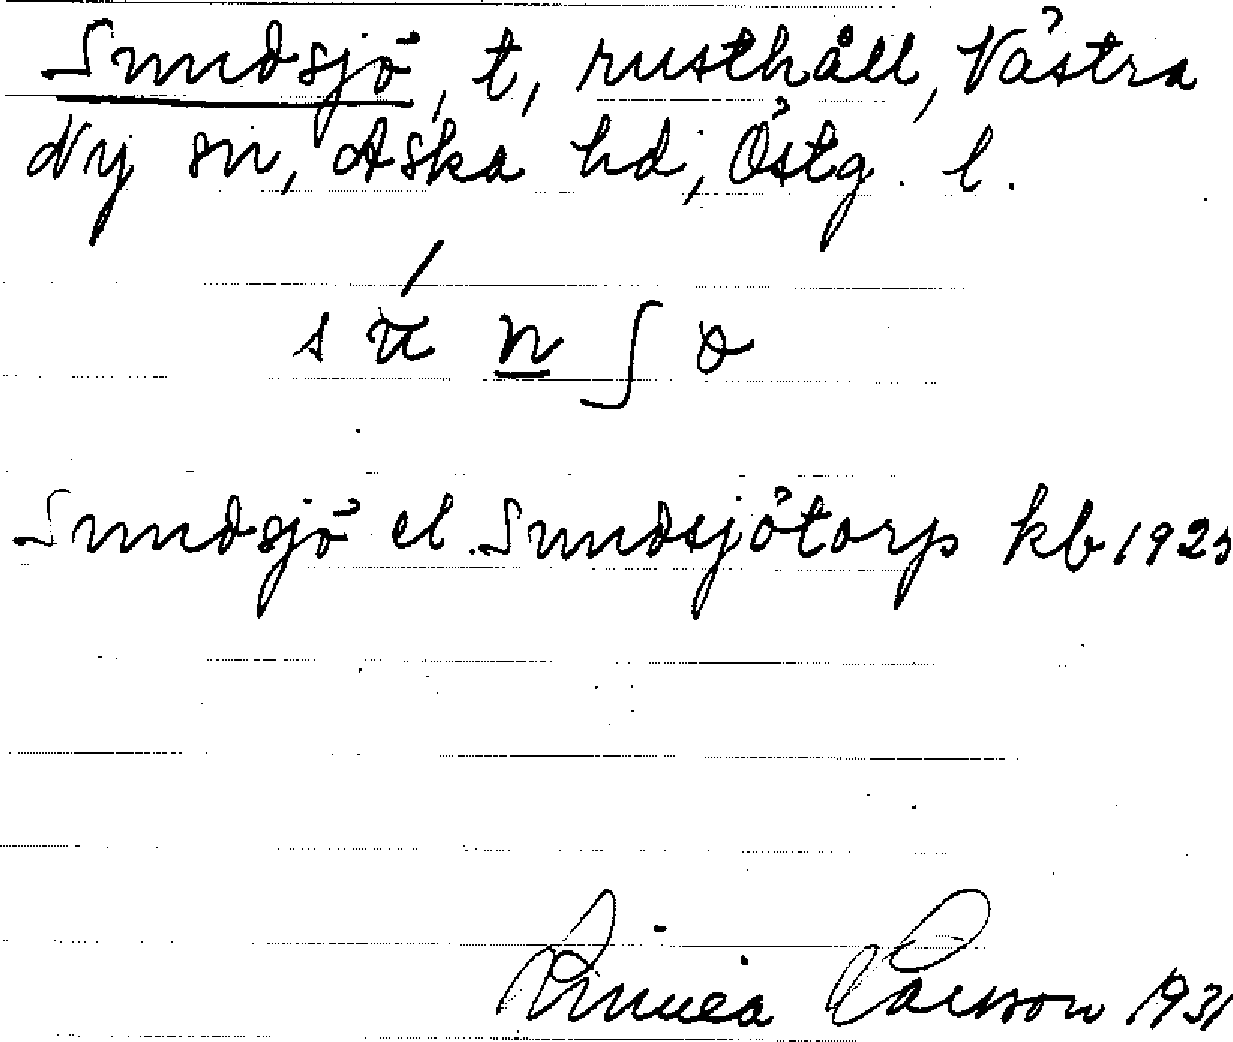 Sundsjö, t, rusthåll, Västra
Ny sn, Aska hd, Östg. l.
Sundsjö el. Sundsjötorp kb 1925
Linnea Larsson 1931